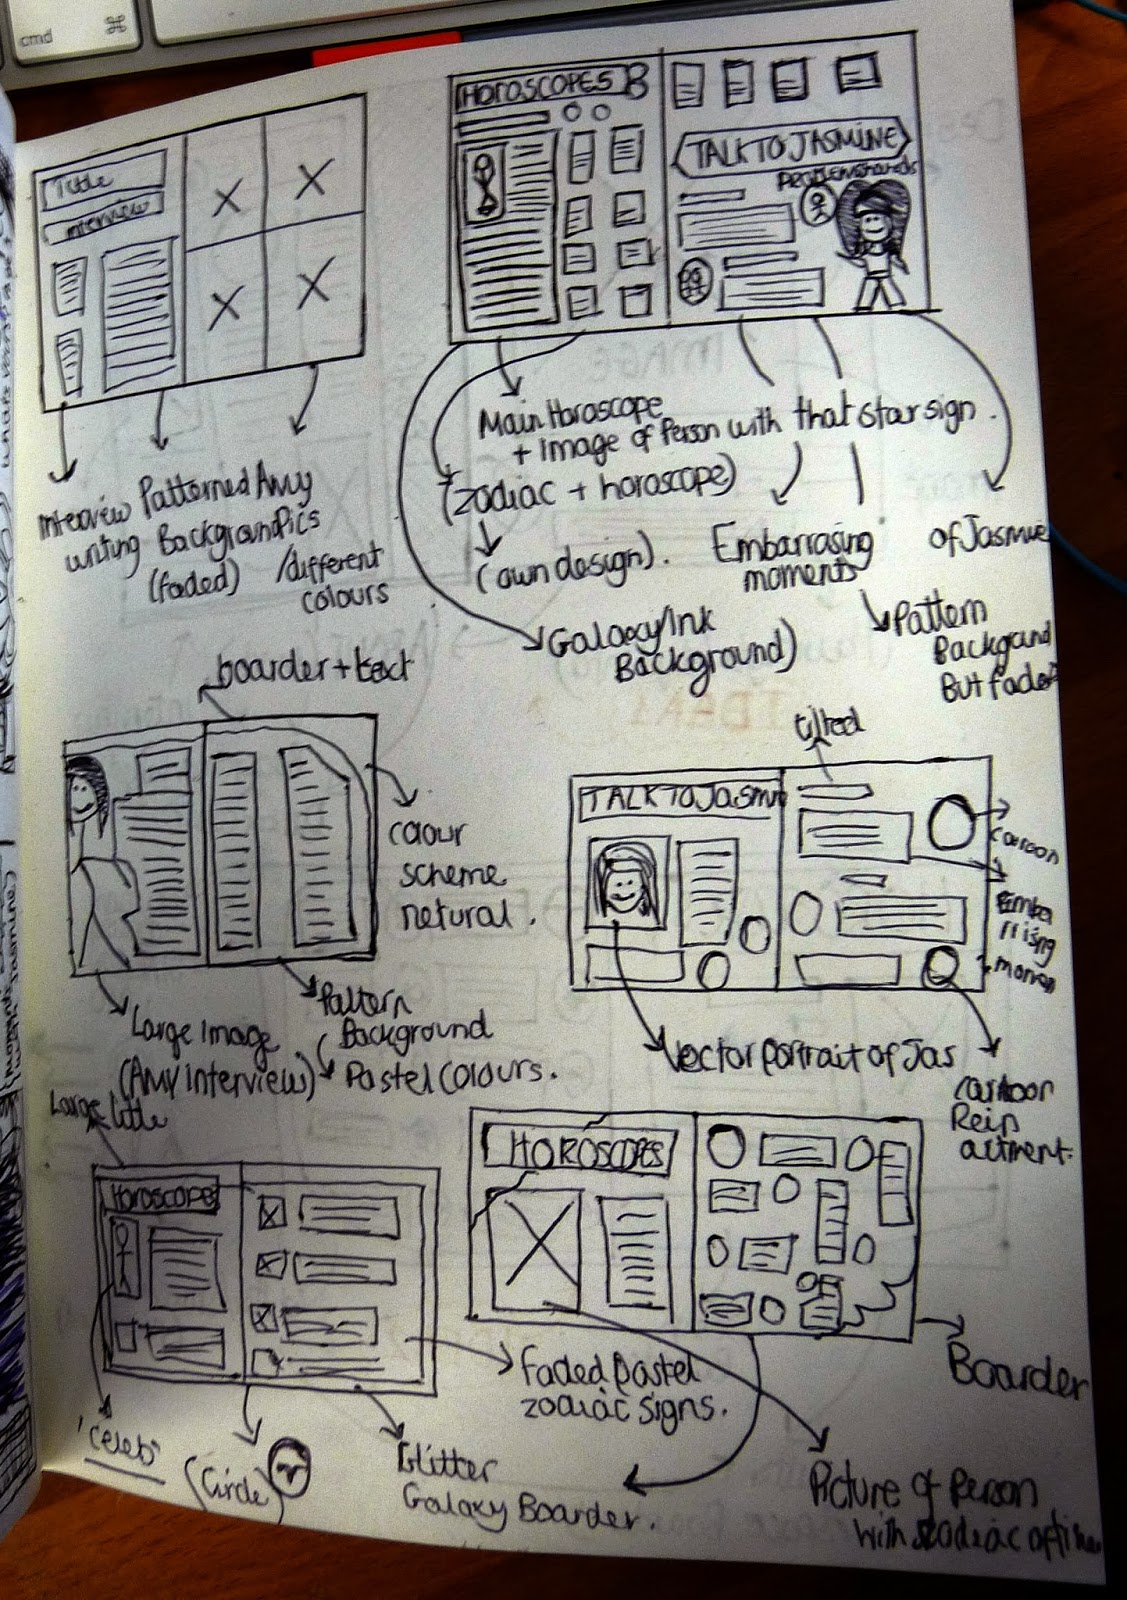 cmd
⌘
Title
Interview
Interview
writing
Patterned
Background
(faded)
Amy
Pics
/different
colours
HOROSCOPES
TALK TO JASMINE
Main Horoscope
+ Image of Person with that star sign.
(zodiac + horoscope)
(own design).
Galaxy/Ink
Background)
Embarrasing
moments
of Jasmine
Pattern
Background
But faded
boarder + text
colour
scheme
netural.
Large Image
(Amy Interview)
Pattern
Background
Pastel colours.
tilted
TALK TO JASMINE
cartoon
Vector portrait of Jas
cartoon
Rein
actment.
Large title
HOROSCOPES
'celebs'
(Circle)
Glitter
Galaxy Boarder.
Faded pastel
zodiac signs.
HOROSCOPES
Boarder
Picture of Person
with zodiac of